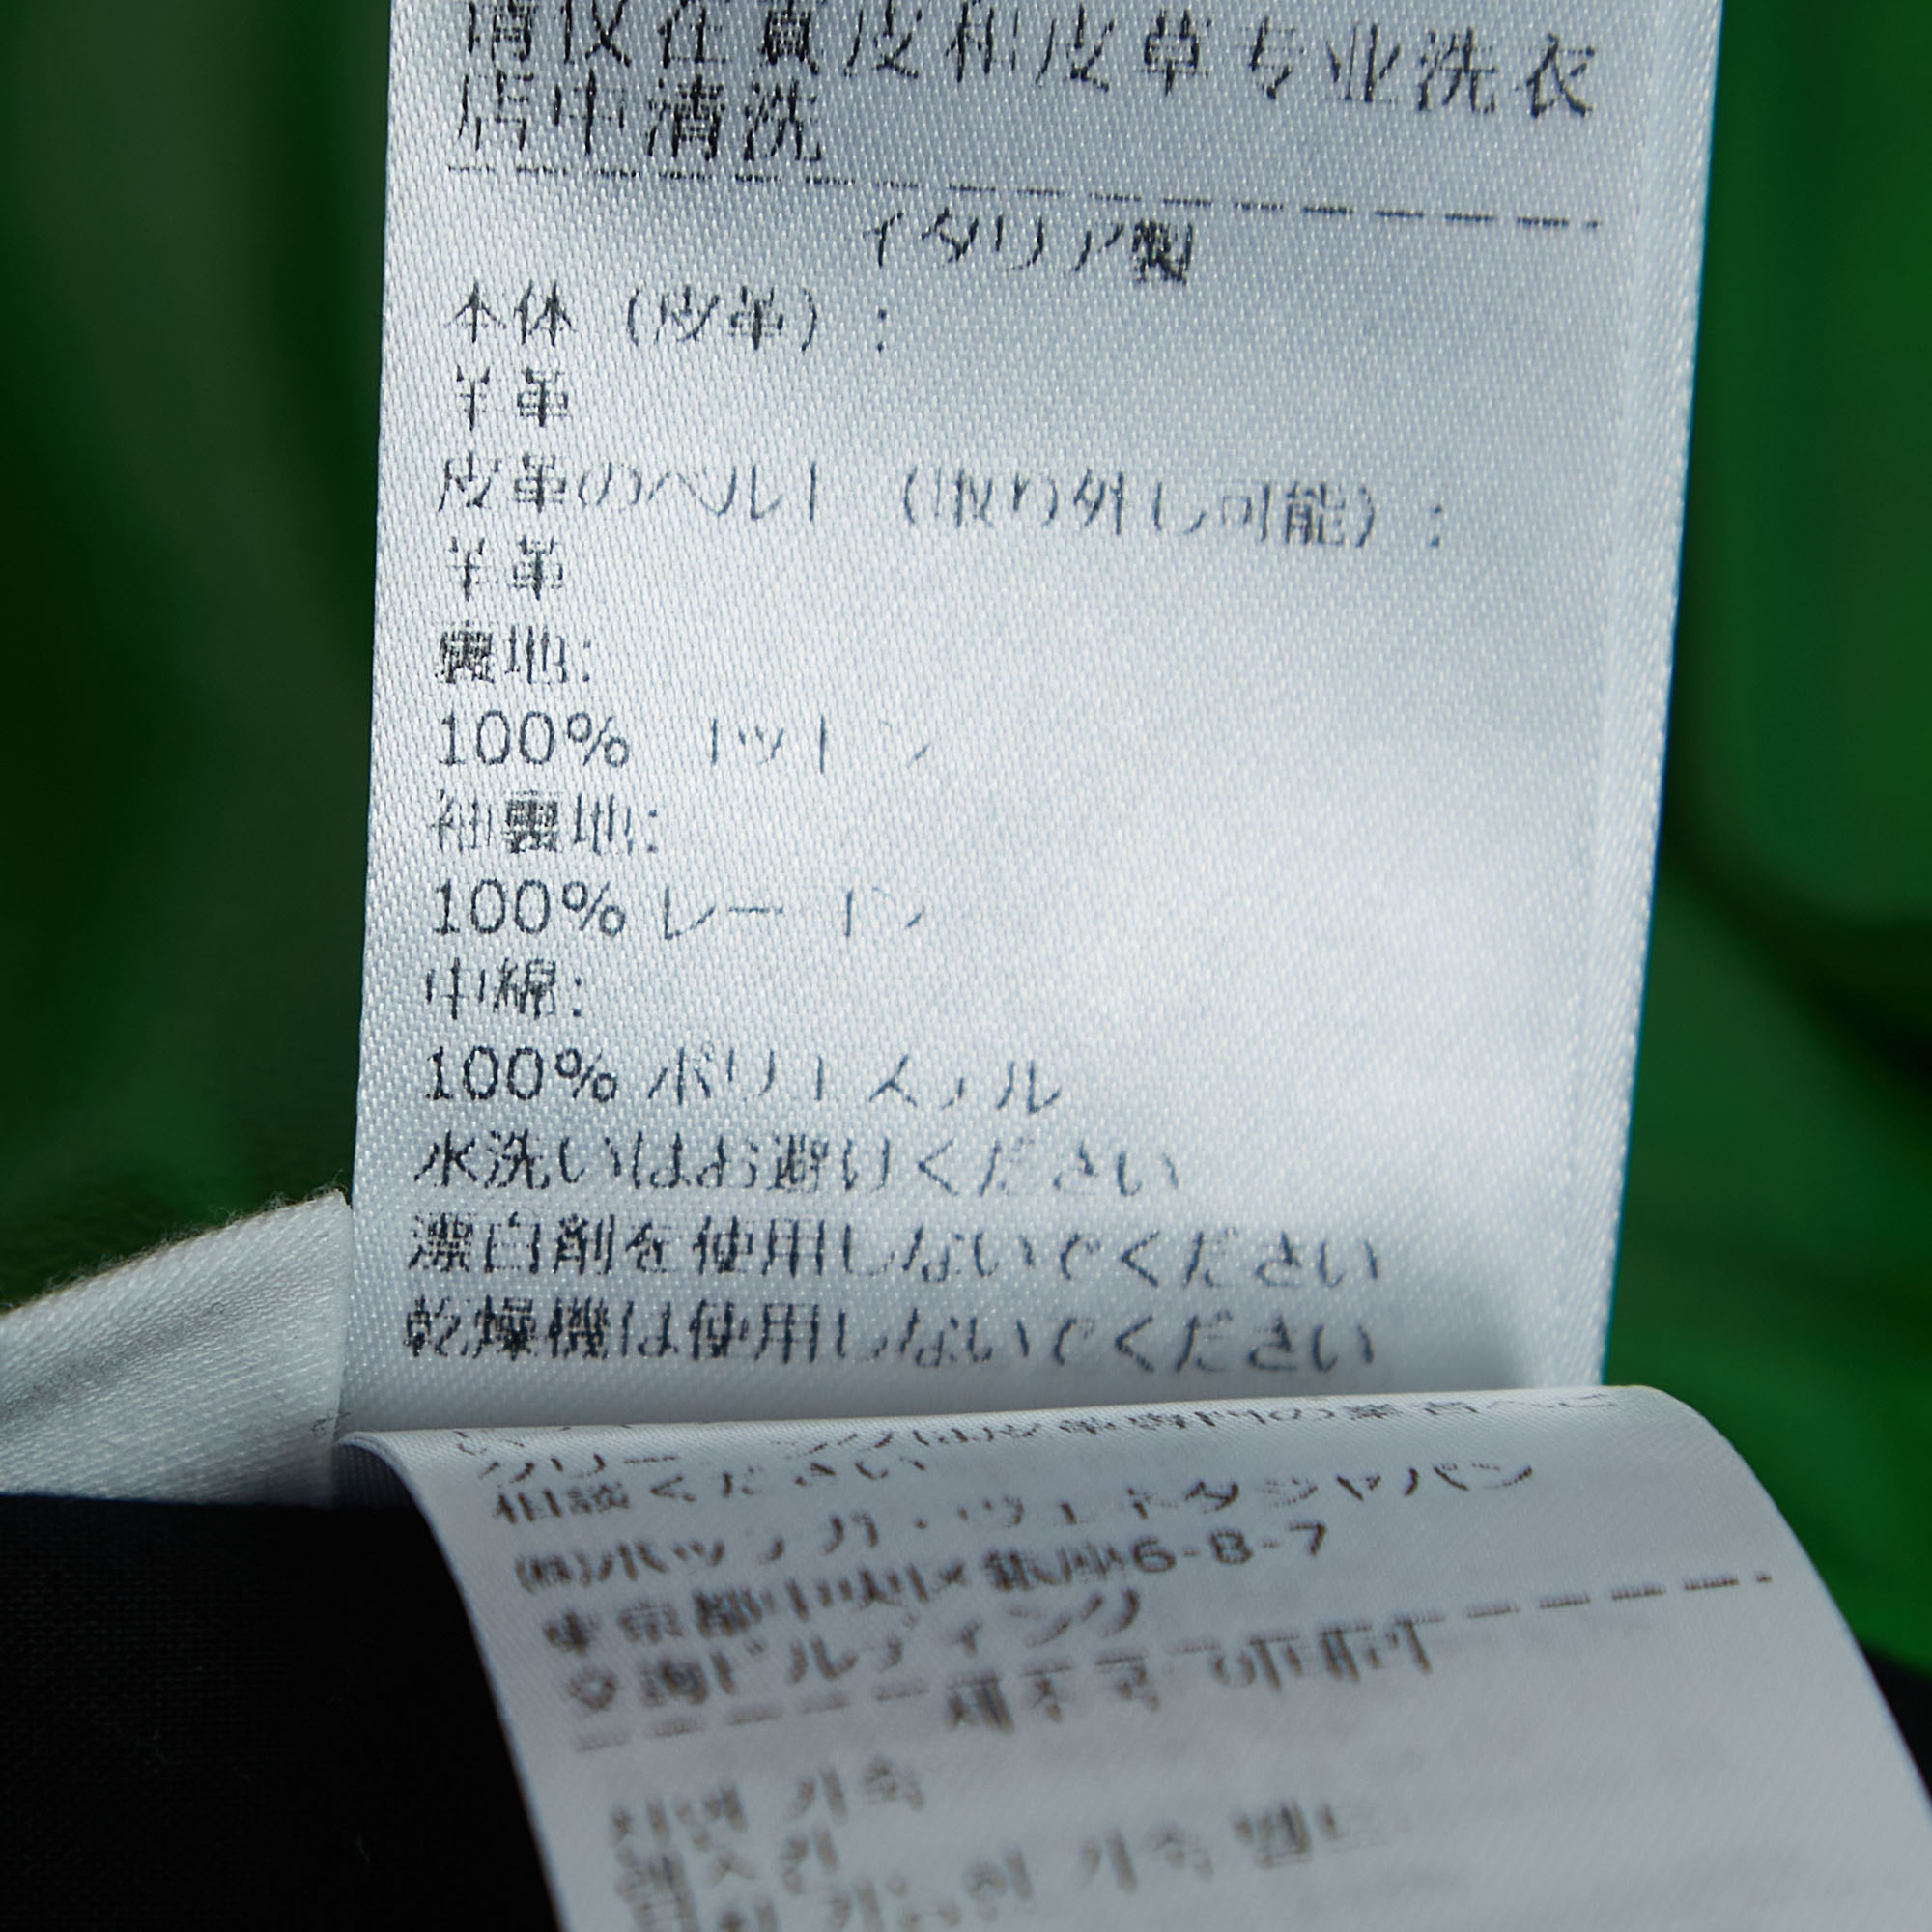 请仅在真皮和皮草专业洗衣
店中清洗
イタリア製
本体（皮革）:
羊革
皮革のベルト（取り外し可能）:
羊革
裏地:
100% コットン
袖裏地:
100% レーヨン
中綿:
100% ポリエステル
水洗いはお避けください
漂白剤を使用しないでください
乾燥機は使用しないでください
クリーニングは皮革専門の業者へご
相談ください
㈱ボッテガ・ヴェネタジャパン
東京都中央区銀座6-8-7
交詢ビルディング
제조국 이태리
가죽
가능한 가죽 벨트